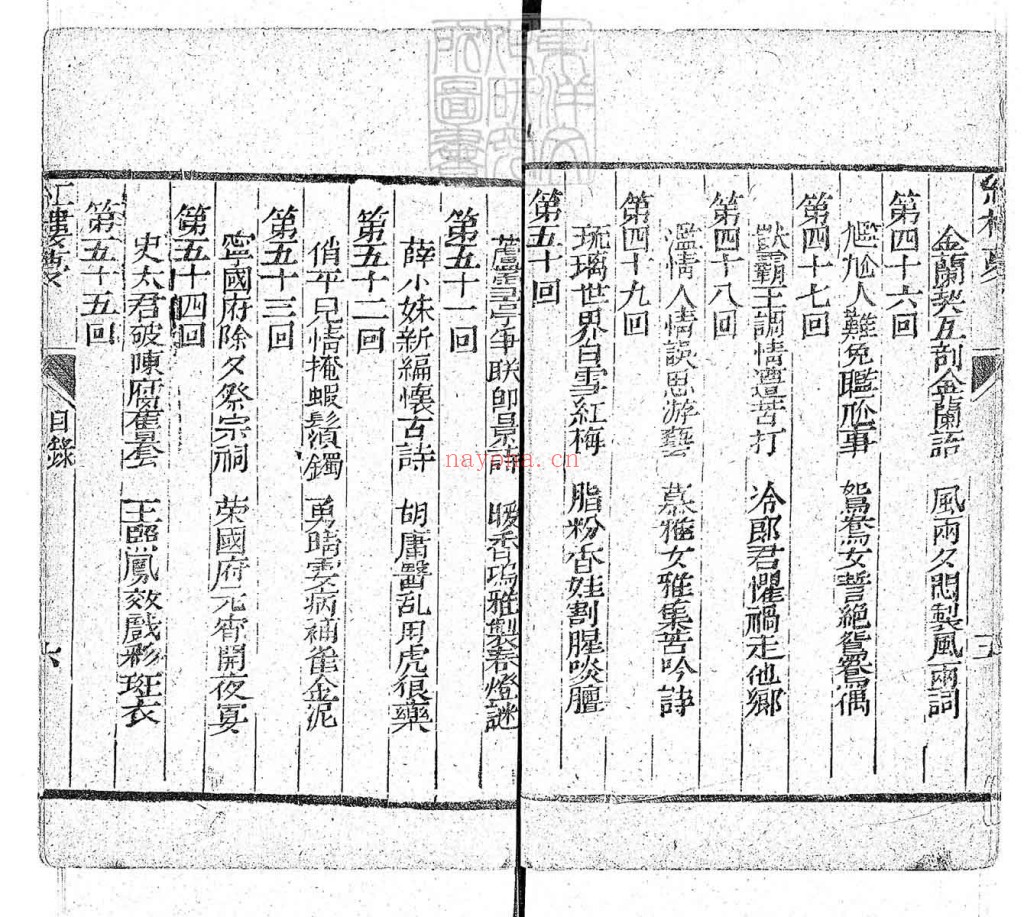 金蘭契互剖金蘭語 風雨夕悶製風雨詞
第四十六回
尷尬人難免尷尬事 鴛鴦女誓絕鴛鴦偶
第四十七回
獃霸王調情遭苦打 冷郎君懼禍走他鄉
第四十八回
濫情人情誤思游藝 慕雅女雅集苦吟詩
第四十九回
琉璃世界白雪紅梅 脂粉香娃割腥啖膻
第五十回
蘆雪亭爭联即景詩 暖香塢雅製春燈謎
第五十一回
薛小妹新編懷古詩 胡庸醫乱用虎狼藥
第五十二回
俏平兒情掩蝦鬚鐲 勇晴雯病補雀金泥
第五十三回
寧國府除夕祭宗祠 荣國府元宵開夜宴
第五十四回
史太君破陳腐舊套 王熙鳳效戲彩斑衣
第五十五回
紅樓夢 目錄 六
nayona.cn